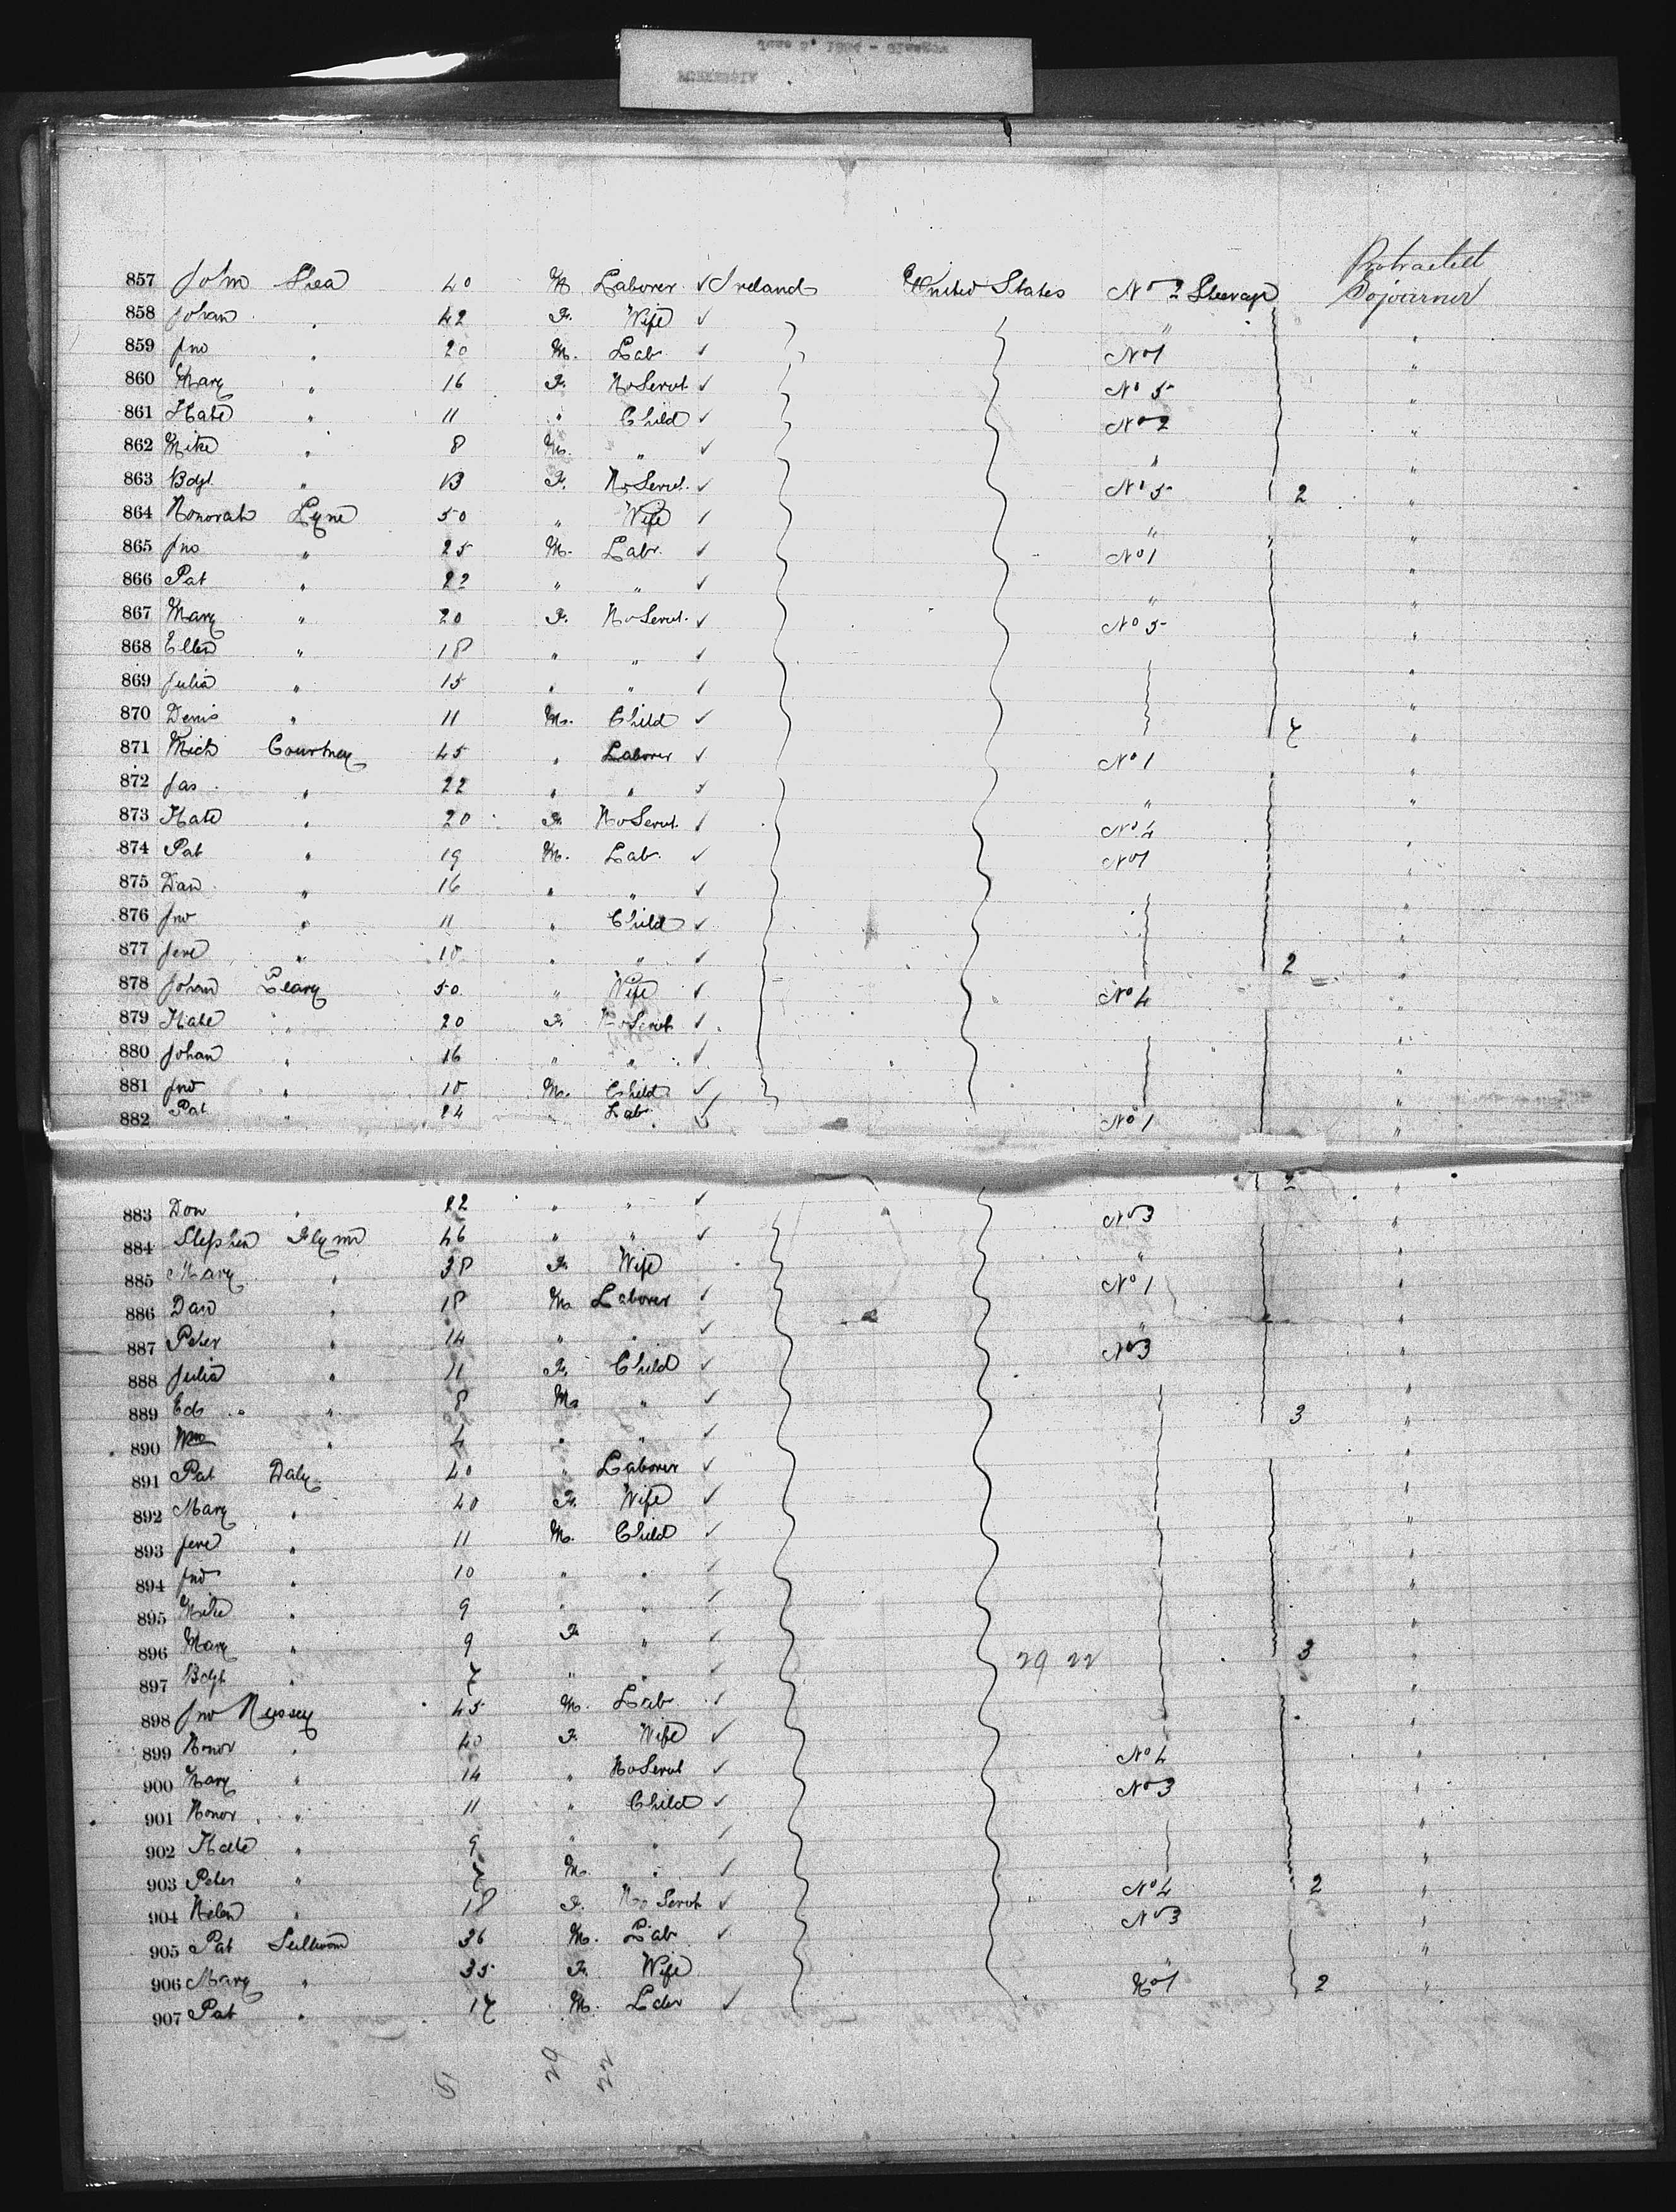 857 John Shea 40 M Laborer ✓ Ireland United States No 2 Steerage Protracted Sojourner
858 Johan " 42 F. Wife ✓ " "
859 Jno " 20 M. Lab. ✓ No 1 "
860 Mary " 16 F. No Servt. ✓ No 5 "
861 Kate " 11 " Child ✓ No 2 "
862 Mike " 8 M. " ✓ " "
863 Bdgt. " 13 F. No Servt. ✓ No 5 2 "
864 Honorah Lyne 50 " Wife ✓ " " "
865 Jno " 25 M. Labr. ✓ No 1 "
866 Pat " 22 " " ✓ " "
867 Mary " 20 F. No Servt. ✓ No 5 "
868 Ellen " 18 " " ✓ "
869 Julia " 15 " " ✓ "
870 Denis " 11 M. Child ✓ "
871 Mich Courtney 45 " Laborer ✓ No 1 "
872 Jas. " 22 " " ✓ " "
873 Kate " 20 F. No Servt. ✓ No 4 "
874 Pat " 19 M. Lab. ✓ No 1 "
875 Dan " 16 " " ✓ "
876 Jno " 11 " Child ✓ "
877 Jere " 10 " " ✓ 2 "
878 Johan Leary 50 " Wife ✓ No 4 "
879 Kate " 20 F. No Servt ✓ "
880 Johan " 16 " " ✓ "
881 Jno " 10 M. Child ✓ "
882 Pat " 24 " Lab. ✓ No 1 "
883 Dan " 22 " " ✓ 2 "
884 Stephen Flynn 46 " " ✓ No 3 "
885 Mary " 38 F. Wife " "
886 Dan " 18 M Laborer ✓ No 1 "
887 Peter " 14 " " ✓ " "
888 Julia " 11 F. Child ✓ No 3 "
889 Ed. " 8 M " ✓ "
890 Wm " 4 " " ✓ 3 "
891 Pat Daly 40 " Laborer ✓ "
892 Mary " 40 F. Wife ✓ "
893 Jere " 11 M. Child ✓ "
894 Jno " 10 " " ✓ "
895 Mike " 9 " " ✓ "
896 Mary " 9 F " ✓ "
897 Bdgt " 7 " " ✓ 29 22 3 "
898 Jno 45 M. Lab. ✓ "
899 Honor " 40 F. Wife ✓ "
900 Mary " 14 " No Servt ✓ No 4 "
901 Honor " 11 " Child ✓ No 3 "
902 Kate " 9 " " ✓ "
903 Peter " 7 M. " ✓ "
904 Helen " 18 F. No Servt ✓ No 4 2 "
905 Pat Sullivan 36 M. Lab ✓ No 3 "
906 Mary " 35 F. Wife " "
907 Pat " 17 M. ✓ No 1 2 "
29 22